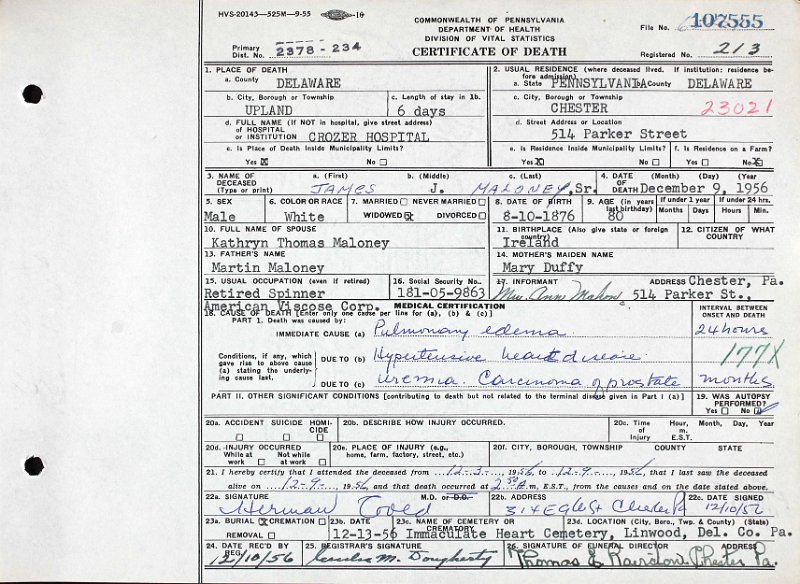 HVS-20143—525M—9-55
COMMONWEALTH OF PENNSYLVANIA
DEPARTMENT OF HEALTH
DIVISION OF VITAL STATISTICS
CERTIFICATE OF DEATH
File No. 107555
Primary Dist. No. 2378-234
Registered No. 213
1. PLACE OF DEATH
a. County DELAWARE
2. USUAL RESIDENCE (where deceased lived. If institution: residence before admission)
a. State PENNSYLVANIA b. County DELAWARE
b. City, Borough or Township UPLAND
c. Length of stay in 1b. 6 days
c. City, Borough or Township CHESTER
23021
d. FULL NAME (If NOT in hospital, give street address) of HOSPITAL or INSTITUTION CROZER HOSPITAL
d. Street Address or Location 514 Parker Street
e. Is Place of Death Inside Municipality Limits? Yes X No
e. Is Residence Inside Municipality Limits? Yes X No
f. Is Residence on a Farm? Yes No X
3. NAME OF DECEASED (Type or print)
a. (First) JAMES b. (Middle) J. c. (Last) MALONEY, Sr.
4. DATE OF DEATH (Month) (Day) (Year) December 9, 1956
5. SEX Male
6. COLOR OR RACE White
7. MARRIED NEVER MARRIED WIDOWED X DIVORCED
8. DATE OF BIRTH 8-10-1876
9. AGE (in years last birthday) 80
If under 1 year Months Days
If under 24 hrs. Hours Min.
10. FULL NAME OF SPOUSE Kathryn Thomas Maloney
11. BIRTHPLACE (Also give state or foreign country) Ireland
12. CITIZEN OF WHAT COUNTRY
13. FATHER'S NAME Martin Maloney
14. MOTHER'S MAIDEN NAME Mary Duffy
15. USUAL OCCUPATION (even if retired) Retired Spinner American Viscose Corp.
16. Social Security No. 181-05-9863
17. INFORMANT Mrs. Ann ADDRESS Chester, Pa. 514 Parker St.,
MEDICAL CERTIFICATION
18. CAUSE OF DEATH [Enter only one cause per line for (a), (b) & (c)]
INTERVAL BETWEEN ONSET AND DEATH
PART 1. Death was caused by:
IMMEDIATE CAUSE (a) Pulmonary edema 24 hours
Conditions, if any, which gave rise to above cause (a) stating the underlying cause last.
DUE TO (b) Hypertensive heart disease 177X
DUE TO (c) Uremia. Carcinoma of prostate months
PART II. OTHER SIGNIFICANT CONDITIONS [contributing to death but not related to the terminal disease given in Part I (a)]
19. WAS AUTOPSY PERFORMED? Yes No
20a. ACCIDENT SUICIDE HOMICIDE
20b. DESCRIBE HOW INJURY OCCURRED.
20c. Time of Injury Hour, m. E.S.T. Month, Day, Year
20d. INJURY OCCURRED While at work Not while at work
20e. PLACE OF INJURY (e.g., home, farm, factory, street, etc.)
20f. CITY, BOROUGH, TOWNSHIP COUNTY STATE
21. I hereby certify that I attended the deceased from 12-3-, 1956, to 12-9-, 1956, that I last saw the deceased
alive on 12-9-, 1956 and that death occurred at 2:50 A m, E.S.T., from the causes and on the date stated above.
22a. SIGNATURE Herman M.D. or D.O.
22b. ADDRESS 314 E 9th St Chester Pa
22c. DATE SIGNED 12/10/56
23a. BURIAL X CREMATION REMOVAL
23b. DATE 12-13-56
23c. NAME OF CEMETERY OR CREMATORY Immaculate Heart Cemetery,
23d. LOCATION (City, Boro., Twp. & County) (State) Linwood, Del. Co. Pa.
24. DATE REC'D BY REG. 12/10/56
25. REGISTRAR'S SIGNATURE M. Dougherty
26. SIGNATURE OF FUNERAL DIRECTOR ADDRESS Thomas Chester Pa.